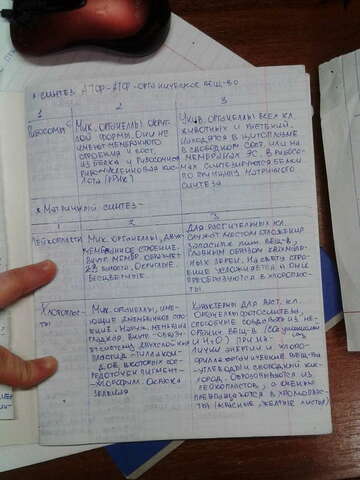 * СИНТЕЗ АТФ - АТФ - ОРГАНИЧЕСКОЕ ВЕЩ-ВО
1 2 3
Рибосомы
Мик. органеллы округ
лой формы. Они не
имеют мембранного
строения и сост.
из белка и рибосомной
рибонуклеиновая кис
лота (рРНК)
Унив. органеллы всех кл.
животных и растений.
Находятся в цитоплазме
в свободном сост. или на
мембранах ЭС. В рибосо-
мах синтезируются белки
по принципу матричного
синтеза
* Матричный синтез-
1 2 3
Лейкопласты
Мик. органеллы, двух
мембранное строение.
Внутр. мембр. образует
2-3 выроста. Округлые.
Бесцветные.
Для растительных кл.
служат местом отложения
запасных пит. вещ-в,
главным образом крахмаль-
ных зёрен. На свету стро-
ение усложняется и они
преобразуются в хлоропла-
сты
Хлоропласт-
ы
Мик. органеллы, име-
ющие 2мембранное стро
ение. Наруж. мембрана
гладкая. Внутр. образу-
ет систему двухслойных
пластид - тилакои-
дов, в которых сос-
редоточен пигмент-
- хлорофилл.
Характерны для раст. кл.
органеллы фотосинтеза,
способные создавать из не-
орган. вещ-в
и H₂O) при на-
личии энергии и хлоро-
филла органические вещ-ва
- углеводы и свободный кис-
лород. Образовываются из
лейкопластов, а осенью
превращаются в хромоплас-
ты (красные, жёлтые листья)